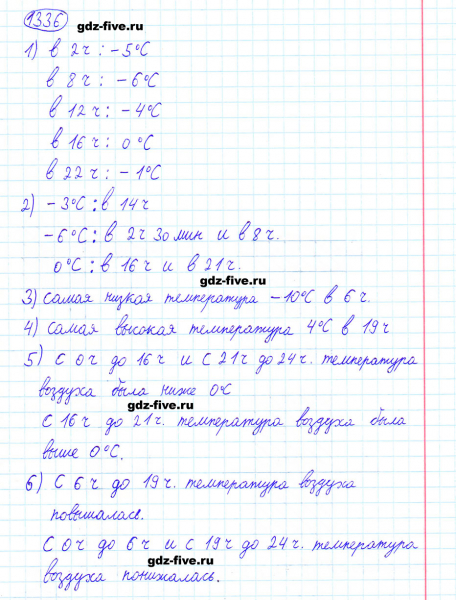 1336
gdz-five.ru
1) в 2 ч : -5°C
в 8 ч : -6°C
в 12 ч : -4°C
gdz-five.ru
в 16 ч : 0°C
в 22 ч : -1°C
2) -3°C : в 14 ч
-6°C : в 2 ч 30 мин и в 8 ч.
0°C : в 16 ч и в 21 ч.
gdz-five.ru
3) Самая низкая температура -10°C в 6 ч.
4) Самая высокая температура 4°C в 19 ч
5) С 0 ч до 16 ч и с 21 ч до 24 ч. температура
воздуха была ниже 0°C
gdz-five.ru
С 16 ч до 21 ч. температура воздуха была
выше 0°C.
6) С 6 ч. до 19 ч. температура воздуха
повышалась.
gdz-five.ru
С 0 ч до 6 ч и с 19 ч до 24 ч. температура
gdz-five.ru
воздуха понижалась.